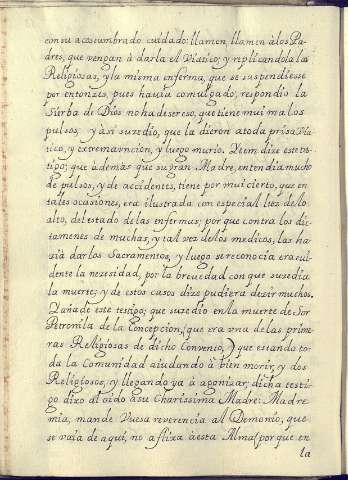 con su acostumbrado cuidado: llamen, llamen à los Pa-
dres, que vengan à darla el Viatico; y replicandola las
Religiosas, y la misma enferma, que se suspendiesse
por entonzes, pues havia comulgado, respondio la
Sierba de Dios no ha de ser eso, que tiene mui malos
pulsos, y asi suzedio, que la dieron a toda prisa Via-
tico, y extremavncion, y luego murio. Ytem dize este tes-
tigo; que à demàs que su gran Madre, entendia mucho
de pulsos, y de accidentes, tiene por mui cierto, que en
tales ocasiones, era ilustrada con especial luz de lo
alto, del estado de las enfermas; por que contra los dic-
tamenes de muchas, y tal vez de los medicos, las ha-
zia dàr los Sacramentos, y luego se reconocia era evi-
dente la nezesidad, por la brevedad con que susedia
la muerte; y de estos casos dize pudiera dezir muchos.
Y añade este testigo; que suzedio en la muerte de Sor
Petronila de la Concepcion (que era vna de las prime-
ras Religiosas de dicho Convento,) que estando to-
da la Comunidad aiudando à bien morir, y dos
Religiosos, y llegando ya à agonizar, dicha testi-
go dixo al oido a su Charissima Madre: Madre
mia, mande Vuesa reverencia al Demonio, que
se vaia de aqui, no aflixa à esta Alma (por que en
la